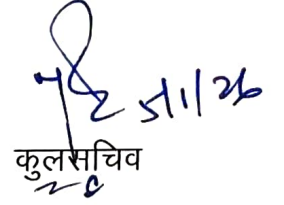 5/1/26
कुलसचिव